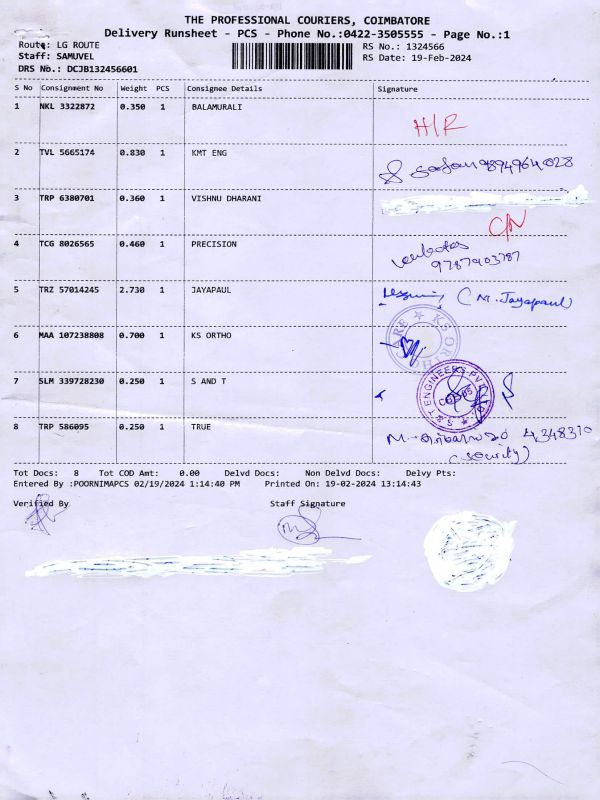 THE PROFESSIONAL COURIERS, COIMBATORE
Delivery Runsheet - PCS - Phone No.:0422-3505555 - Page No.:1
Route: LG ROUTE
RS No.: 1324566
Staff: SAMUVEL
RS Date: 19-Feb-2024
DRS No.: DCJB132456601
S No Consignment No Weight PCS Consignee Details Signature
1 NKL 3322872 0.350 1 BALAMURALI
H/R
2 TVL 5665174 0.830 1 KMT ENG
3 TRP 6380701 0.360 1 VISHNU DHARANI
4 TCG 8026565 0.460 1 PRECISION
5 TRZ 57014245 2.730 1 JAYAPAUL
(M. Jayapaul)
6 MAA 107238808 0.700 1 KS ORTHO
KS ORTHO CARE
7 SLM 339728230 0.250 1 S AND T
S&T ENGINEERS PVT LTD
8 TRP 586095 0.250 1 TRUE
(Security)
Tot Docs: 8 Tot COD Amt: 0.00 Delvd Docs: Non Delvd Docs: Delvy Pts:
Entered By :POORNIMAPCS 02/19/2024 1:14:40 PM Printed On: 19-02-2024 13:14:43
Verified By Staff Signature